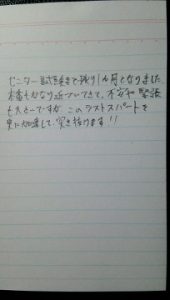 センター試験まで残り1ヶ月となりました
本番もかなり近づいてきて、不安和 緊張
もストーですが、このラストスパートを
更に加速して、突き抜けます!!